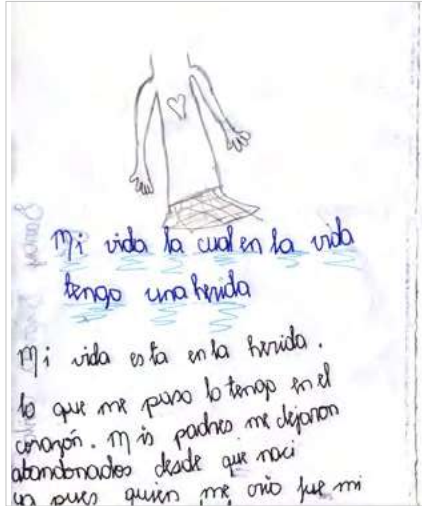 Mi vida la cual en la vida
tengo una herida
Mi vida esta en la herida.
lo que me paso lo tengo en el
corazón. Mis padres me dejaron
abandonados desde que naci
ya pues quien me crio fue mi